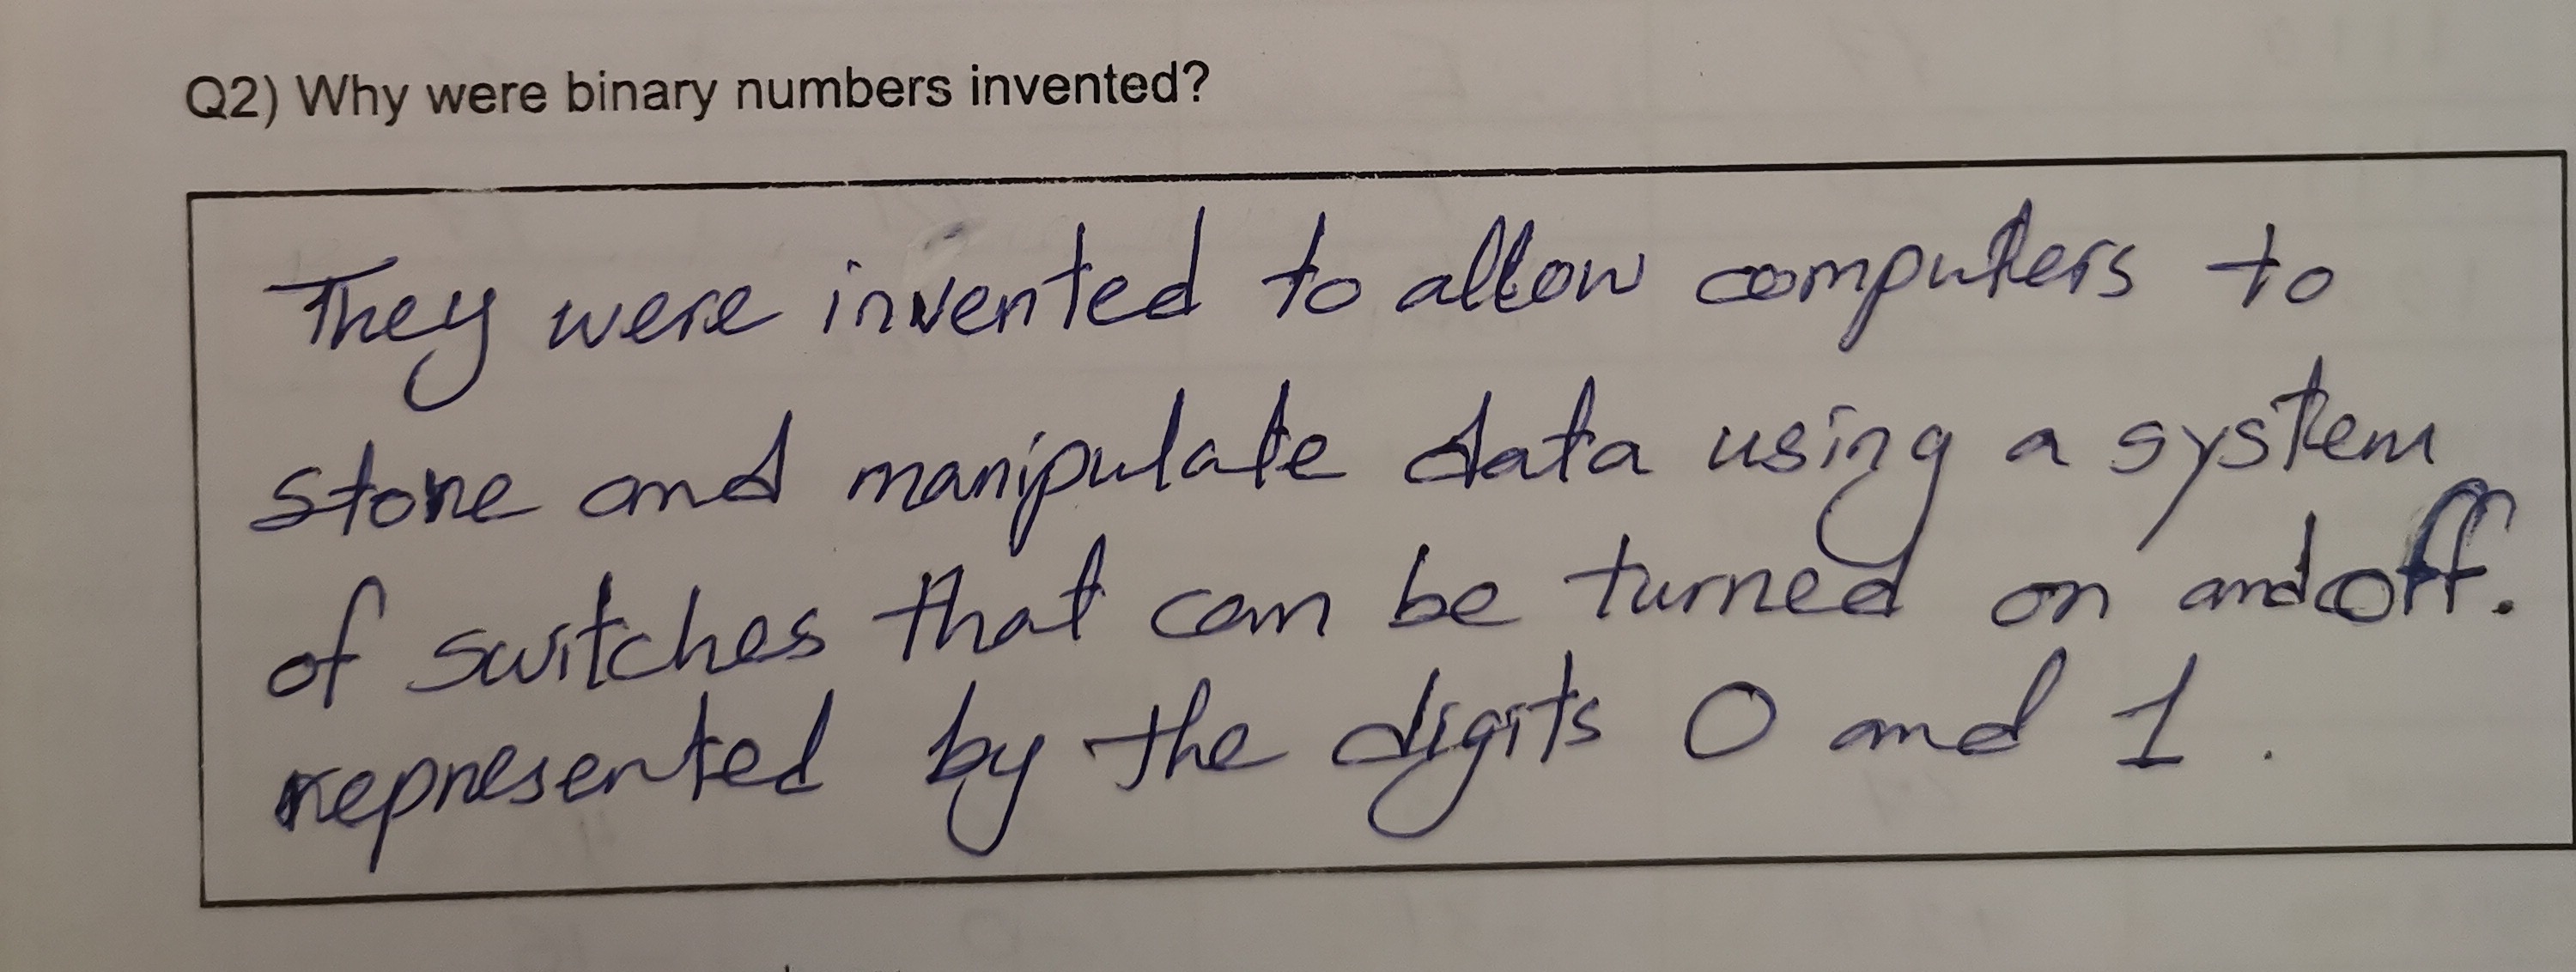 Q2) Why were binary numbers invented?
They were invented to allow computers to
store and manipulate data using a system
of switches that can be turned on and off.
represented by the digits 0 and 1.